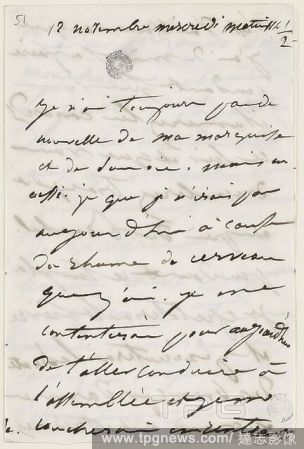 51
12 novembre mercredi matin 11h 1/2
Je n'ai toujours pas de
nouvelle de ma marquise
et de
je que je n'irai pas
aujourd'hui à cause
du rhume de cerveau
que j'ai. je me
contenterai pour aujourd'hui
de t'aller conduire à
l'assemblée et je me
coucherai en
TPG
www.tpgnews.com/達志影像